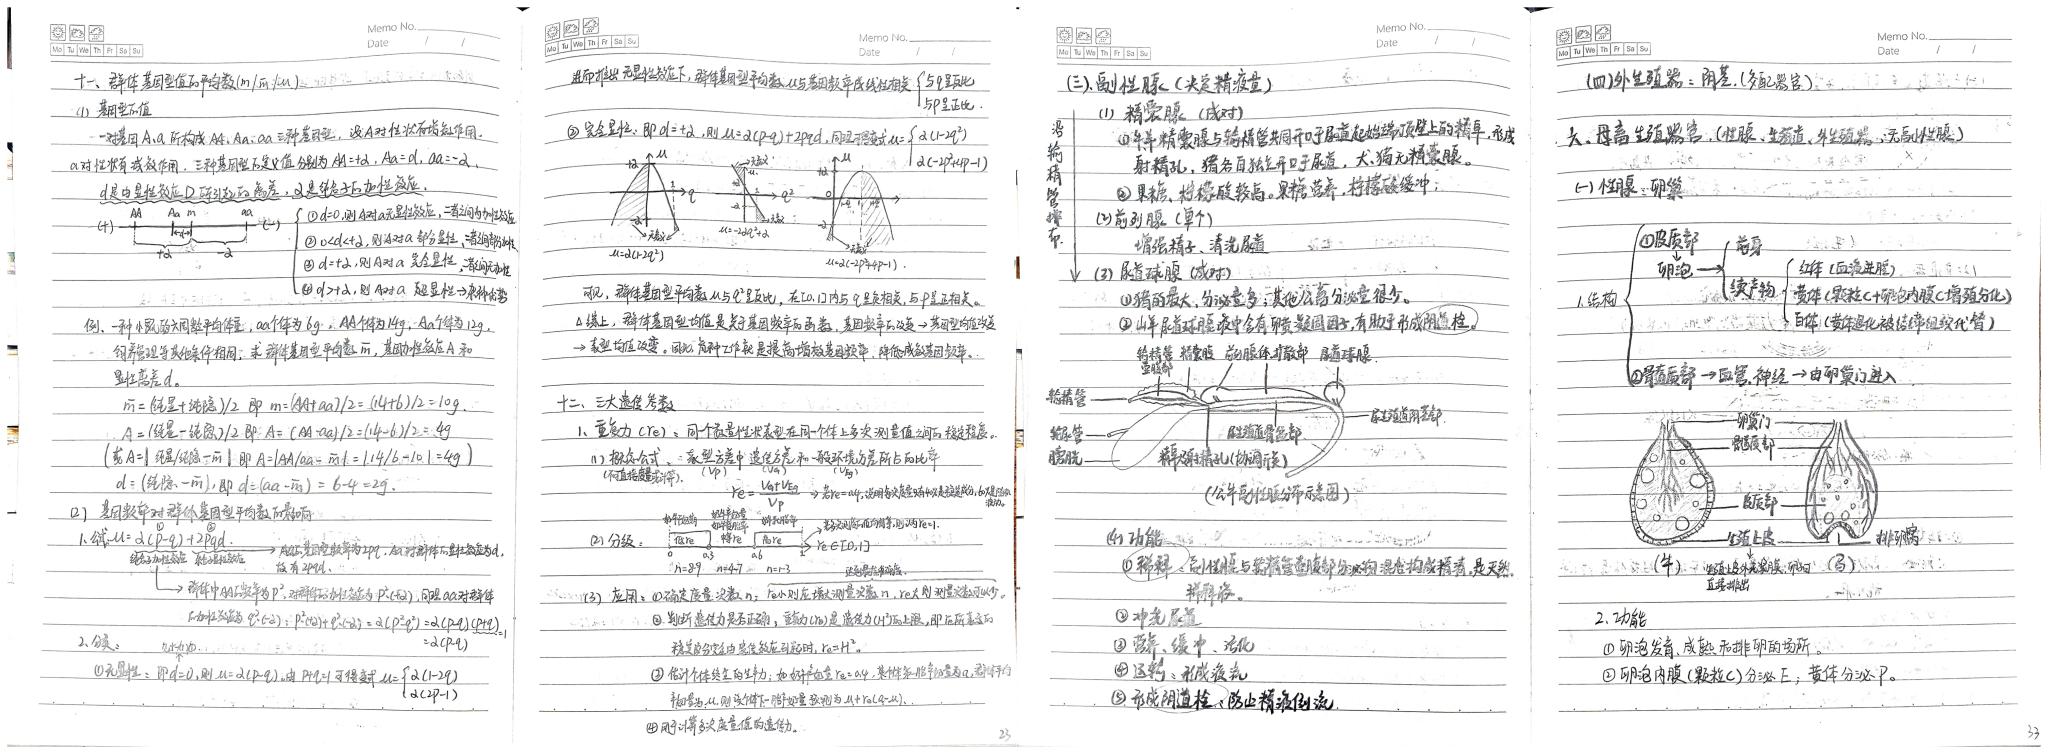 Memo No.
Mo Tu We Th Fr Sa Su
Date / /
十一、群体基因型值的平均数(m/m̄/μ)
(1) 基因型值
一对基因A、a所构成AA、Aa、aa三种基因型,设A对性状有增效作用,
a对性状有减效作用,三种基因型定义值分别为AA=+α, Aa=d, aa=-α,
d是由显性效应D所引起的离差,α是等位基因的加性效应.
AA Aa m aa
(+) (-)
+α -α
①d=0,则A对a无显性效应,二者之间为加性效应
②0<d<+α,则A对a部分显性,
③d=+α,则A对a完全显性,
④d>+α,则A对a超显性→杂种优势
例、一种小鼠的六周龄平均体重,aa个体为6g,AA个体为14g,Aa个体为12g,
饲养管理等其他条件相同,求群体基因型平均数m̄,基因加性效应A和
显性离差d。
m̄=(纯显+纯隐)/2 即 m=(AA+aa)/2=(14+6)/2=10g.
A=(纯显-纯隐)/2 即 A=(AA-aa)/2=(14-6)/2=4g
(或A=|纯显/纯隐-m̄| 即 A=|AA/aa-m̄|=|14/6-10|=4g)
d=(纯隐-m̄),即d=(aa-m̄)=6-4=2g.
(2) 基因频率对群体基因型平均数的影响
1.公式 μ=α(p-q)+2pqd
→Aa的基因型频率为2pq,Aa对群体的显性效应为d,
故有2pqd.
→群体中AA的频率为p²,对群体的加性效应为p²(+α),同理aa对群体
的加性效应为q²(-α);p²(+α)+q²(-α)=α(p²-q²)=α(p-q)(p+q)
=1
=α(p-q)
2.分类:
①无显性:即d=0,则μ=α(p-q),由p+q=1可得变式μ={α(1-2q)
α(2p-1)
Memo No.
Mo Tu We Th Fr Sa Su
Date / /
进而推出无显性效应下,群体基因型平均数μ与基因频率成线性相关{与q呈反比
与p呈正比.
②完全显性:即d=+α,则μ=α(p-q)+2pqα,同理可得变式μ={α(1-2q²)
α(-2p²+4p-1)
μ=α(1-2q²)
μ=-2αq²+α
μ=α(-2p²+4p-1).
可见,群体基因型平均数μ与q²呈反比,在[0,1]内与q呈负相关,与p呈正相关。
△综上,群体基因型均值是关于基因频率的函数,基因频率的改变→基因型均值改变
→表型均值改变。因此育种工作就是提高增效基因频率,降低减效基因频率.
十二、三大遗传参数
1、重复力(re):同个数量性状表型在同一个体上多次测量值之间的稳定程度.
(1) 概念公式:表型方差中遗传方差和一般环境方差所占的比率
(不可直接度量或计算). (VP) (VG) (VEg)
re=(VG+VEg)/VP
(2) 分级:
低re 中re 高re
0 0.3 0.6 1
n=8-9 n=4-7 n=1-3
re∈[0,1]
(3) 应用:①确定度量次数n:re小则应增大测量次数n,re大则测量次数可以少。
②判断遗传力是否正确,重复力(re)是遗传力(H²)的上限,
re=H².
③估计个体终生的生产力:
④用于计算多次度量值的遗传力。
23
Memo No.
Mo Tu We Th Fr Sa Su
Date / /
(三)、副性腺(决定精液量)
沿输精管排布
(1) 精囊腺(成对)
①牛羊精囊腺与输精管共同开口于尿道起始端顶壁上的精阜,形成
射精孔,猪各自独立开口于尿道,犬、猫无精囊腺。
②果糖、柠檬酸较高。果糖营养,柠檬酸缓冲;
(2) 前列腺(单个)
增强精子、清洗尿道
(3) 尿道球腺(成对)
①猪的最大,分泌量多;其他公畜分泌量很少。
②山羊尿道球腺液中含有卵黄凝固因子,有助于形成阴道栓。
输精管壶腹部 精囊腺 前列腺体 扩散部 尿道球腺
输精管
输尿管
膀胱
尿生殖道阴茎部
尿生殖道骨盆部
精阜射精孔
(公牛副性腺分布示意图)
(4) 功能
①稀释:副性腺与输精管壶腹部分泌物混合构成精清,是天然
稀释液。
②冲洗尿道
③营养、缓冲、活化
④运输:形成液流
⑤形成阴道栓、防止精液倒流
Memo No.
Mo Tu We Th Fr Sa Su
Date / /
(四)外生殖器:阴茎.(交配器官)
六、母畜生殖器官.(性腺、生殖道、外生殖器;无副性腺)
(一)性腺:卵巢
1.结构
①皮质部
卵泡→{前身
续产物{红体(血液进腔)
黄体(颗粒C+卵泡内膜C增殖分化)
白体(黄体退化被结缔组织代替)
②髓质部→血管、神经→由卵巢门进入
卵巢门
髓质部
皮质部
生殖上皮
排卵窝
(牛) (马)
2.功能
①卵泡发育、成熟和排卵的场所。
②卵泡内膜(颗粒C)分泌E;黄体分泌P。
33